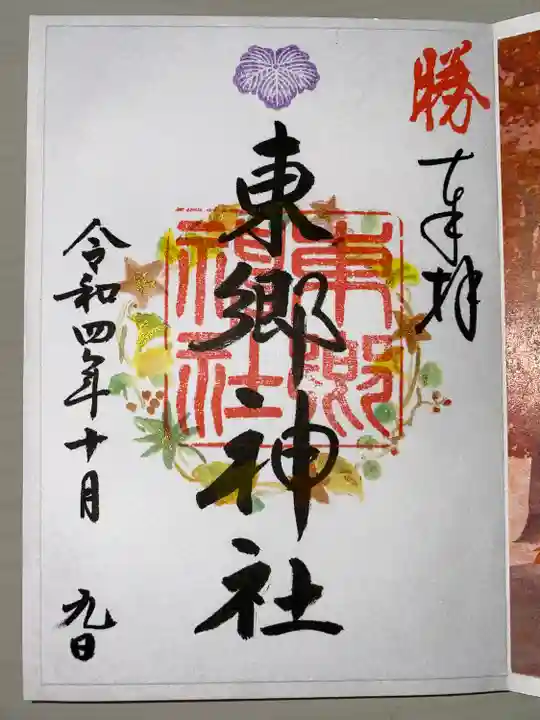 勝
奉拝
東郷神社
東郷
神社
令和四年十月
九日